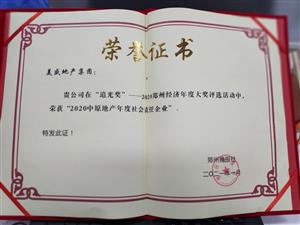 荣誉证书
美盛地产集团：
贵公司在“追光奖”——2020郑州经济年度大奖评选活动中，
荣获“2020中原地产年度社会责任企业”．
特发此证！
郑州报社
二〇二一年一月